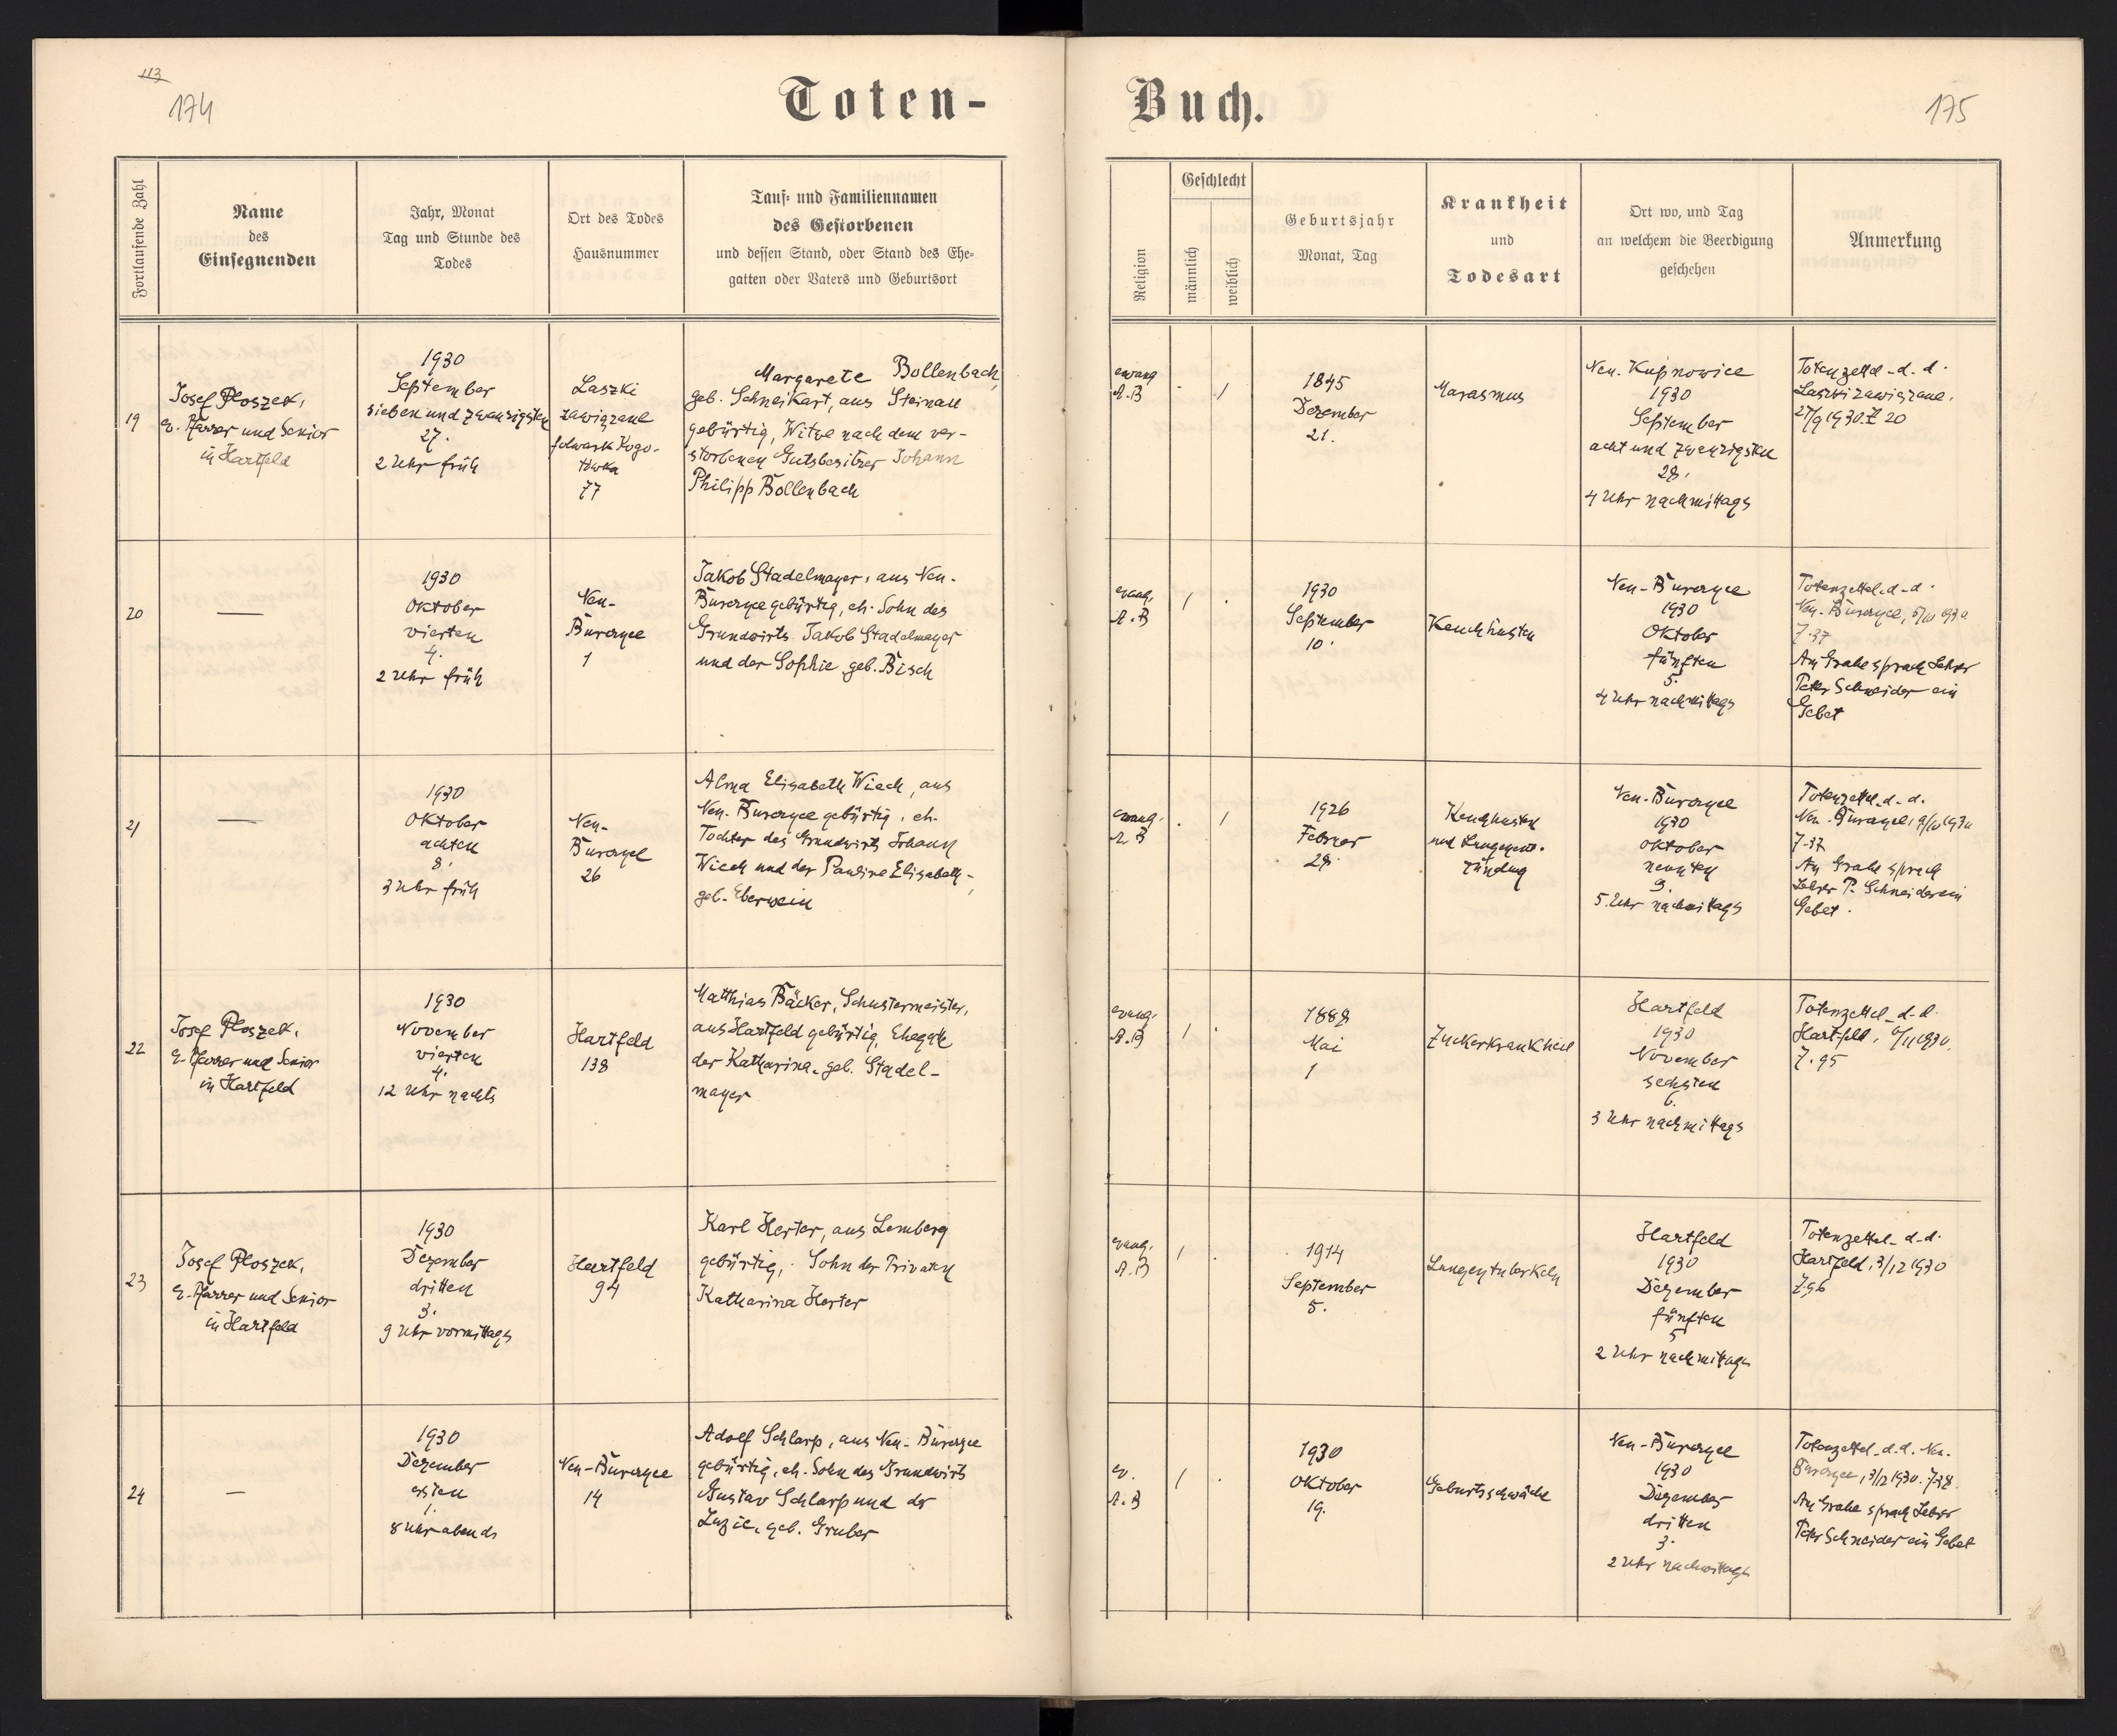 113
174
Toten-
Fortlaufende Zahl
Name
des
Einsegnenden
Jahr, Monat
Tag und Stunde des
Todes
Ort des Todes
Hausnummer
Tauf- und Familiennamen
des Gestorbenen
und dessen Stand, oder Stand des Ehe-
gatten oder Vaters und Geburtsort
19
Josef Ploszek,
e. Pfarrer und Senior
in Hartfeld
1930
September
sieben und zwanzigsten
27.
2 Uhr früh
Laszki
zawiązane
folwark
77
Margarete Bollenbach,
geb. Schneikart, aus Steinau
gebürtig, Witwe nach dem ver-
storbenen Gutsbesitzer Johann
Philipp Bollenbach
20
—
1930
Oktober
vierten
4.
2 Uhr früh
Neu-
Burczyce
1
Jakob Stadelmayer, aus Neu-
Burczyce gebürtig, eh. Sohn des
Grundwirts Jakob Stadelmayer
und der Sophie geb. Bisch
21
—
1930
Oktober
achten
8.
3 Uhr früh
Neu-
Burczyce
26
Alma Elisabeth Wiech, aus
Neu-Burczyce gebürtig, eh.
Tochter des Grundwirts Johann
Wiech und der Pauline Elisabeth,
geb. Eberwein
22
Josef Ploszek,
e. Pfarrer und Senior
in Hartfeld
1930
November
vierten
4.
12 Uhr nachts
Hartfeld
138
Matthias Bäcker, Schustermeister,
aus Hartfeld gebürtig, Ehegatte
der Katharina, geb. Stadel-
mayer
23
Josef Ploszek,
e. Pfarrer und Senior
in Hartfeld
1930
Dezember
dritten
3.
9 Uhr vormittags
Hartfeld
94
Karl Herter, aus Lemberg
gebürtig, Sohn der Privaten
Katharina Herter
24
—
1930
Dezember
ersten
1.
8 Uhr abends
Neu-Burczyce
14
Adolf Schlarp, aus Neu-Burczyce
gebürtig, eh. Sohn des Grundwirts
Gustav Schlarp und der
Luzie, geb. Gruber
Buch.
175
Religion
Geschlecht
männlich
weiblich
Geburtsjahr
Monat, Tag
Krankheit
und
Todesart
Ort wo, und Tag
an welchem die Beerdigung
geschehen
Anmerkung
evang.
A.B
1
1845
Dezember
21.
Marasmus
Neu-Kupnowice
1930
September
acht und zwanzigsten
28.
4 Uhr nachmittags
Totenzettel d. d.
Laszki zawiązane,
27/9 1930. Z 20
evang.
A.B
1
1930
September
10.
Keuchhusten
Neu-Burczyce
1930
Oktober
fünften
5.
4 Uhr nachmittags
Totenzettel d. d.
Neu-Burczyce, 5/10 1930
Z. 37
Am Grabe sprach Lehrer
Peter Schneider ein
Gebet
evang.
A.B
1
1926
Februar
28.
Keuchhusten
und Lungenent-
zündung
Neu-Burczyce
1930
Oktober
neunten
9.
5 Uhr nachmittags
Totenzettel d. d.
Neu-Burczyce, 9/10 1930
Z. 37
Am Grabe sprach
Lehrer P. Schneider ein
Gebet.
evang.
A.B
1
1888
Mai
1
Zuckerkrankheit
Hartfeld
1930
November
sechsten
6.
3 Uhr nachmittags
Totenzettel d. d.
Hartfeld, 6/11 1930,
Z. 95
evang.
A.B
1
1914
September
5.
Lungentuberkeln
Hartfeld
1930
Dezember
fünften
5
2 Uhr nachmittags
Totenzettel d. d.
Hartfeld, 3/12 1930
Z 96
ev.
A.B
1
1930
Oktober
19.
Geburtsschwäche
Neu-Burczyce
1930
Dezember
dritten
3.
2 Uhr nachmittags
Totenzettel d. d. Neu-
Burczyce, 3/12 1930. Z 38
Am Grabe sprach Lehrer
Peter Schneider ein Gebet